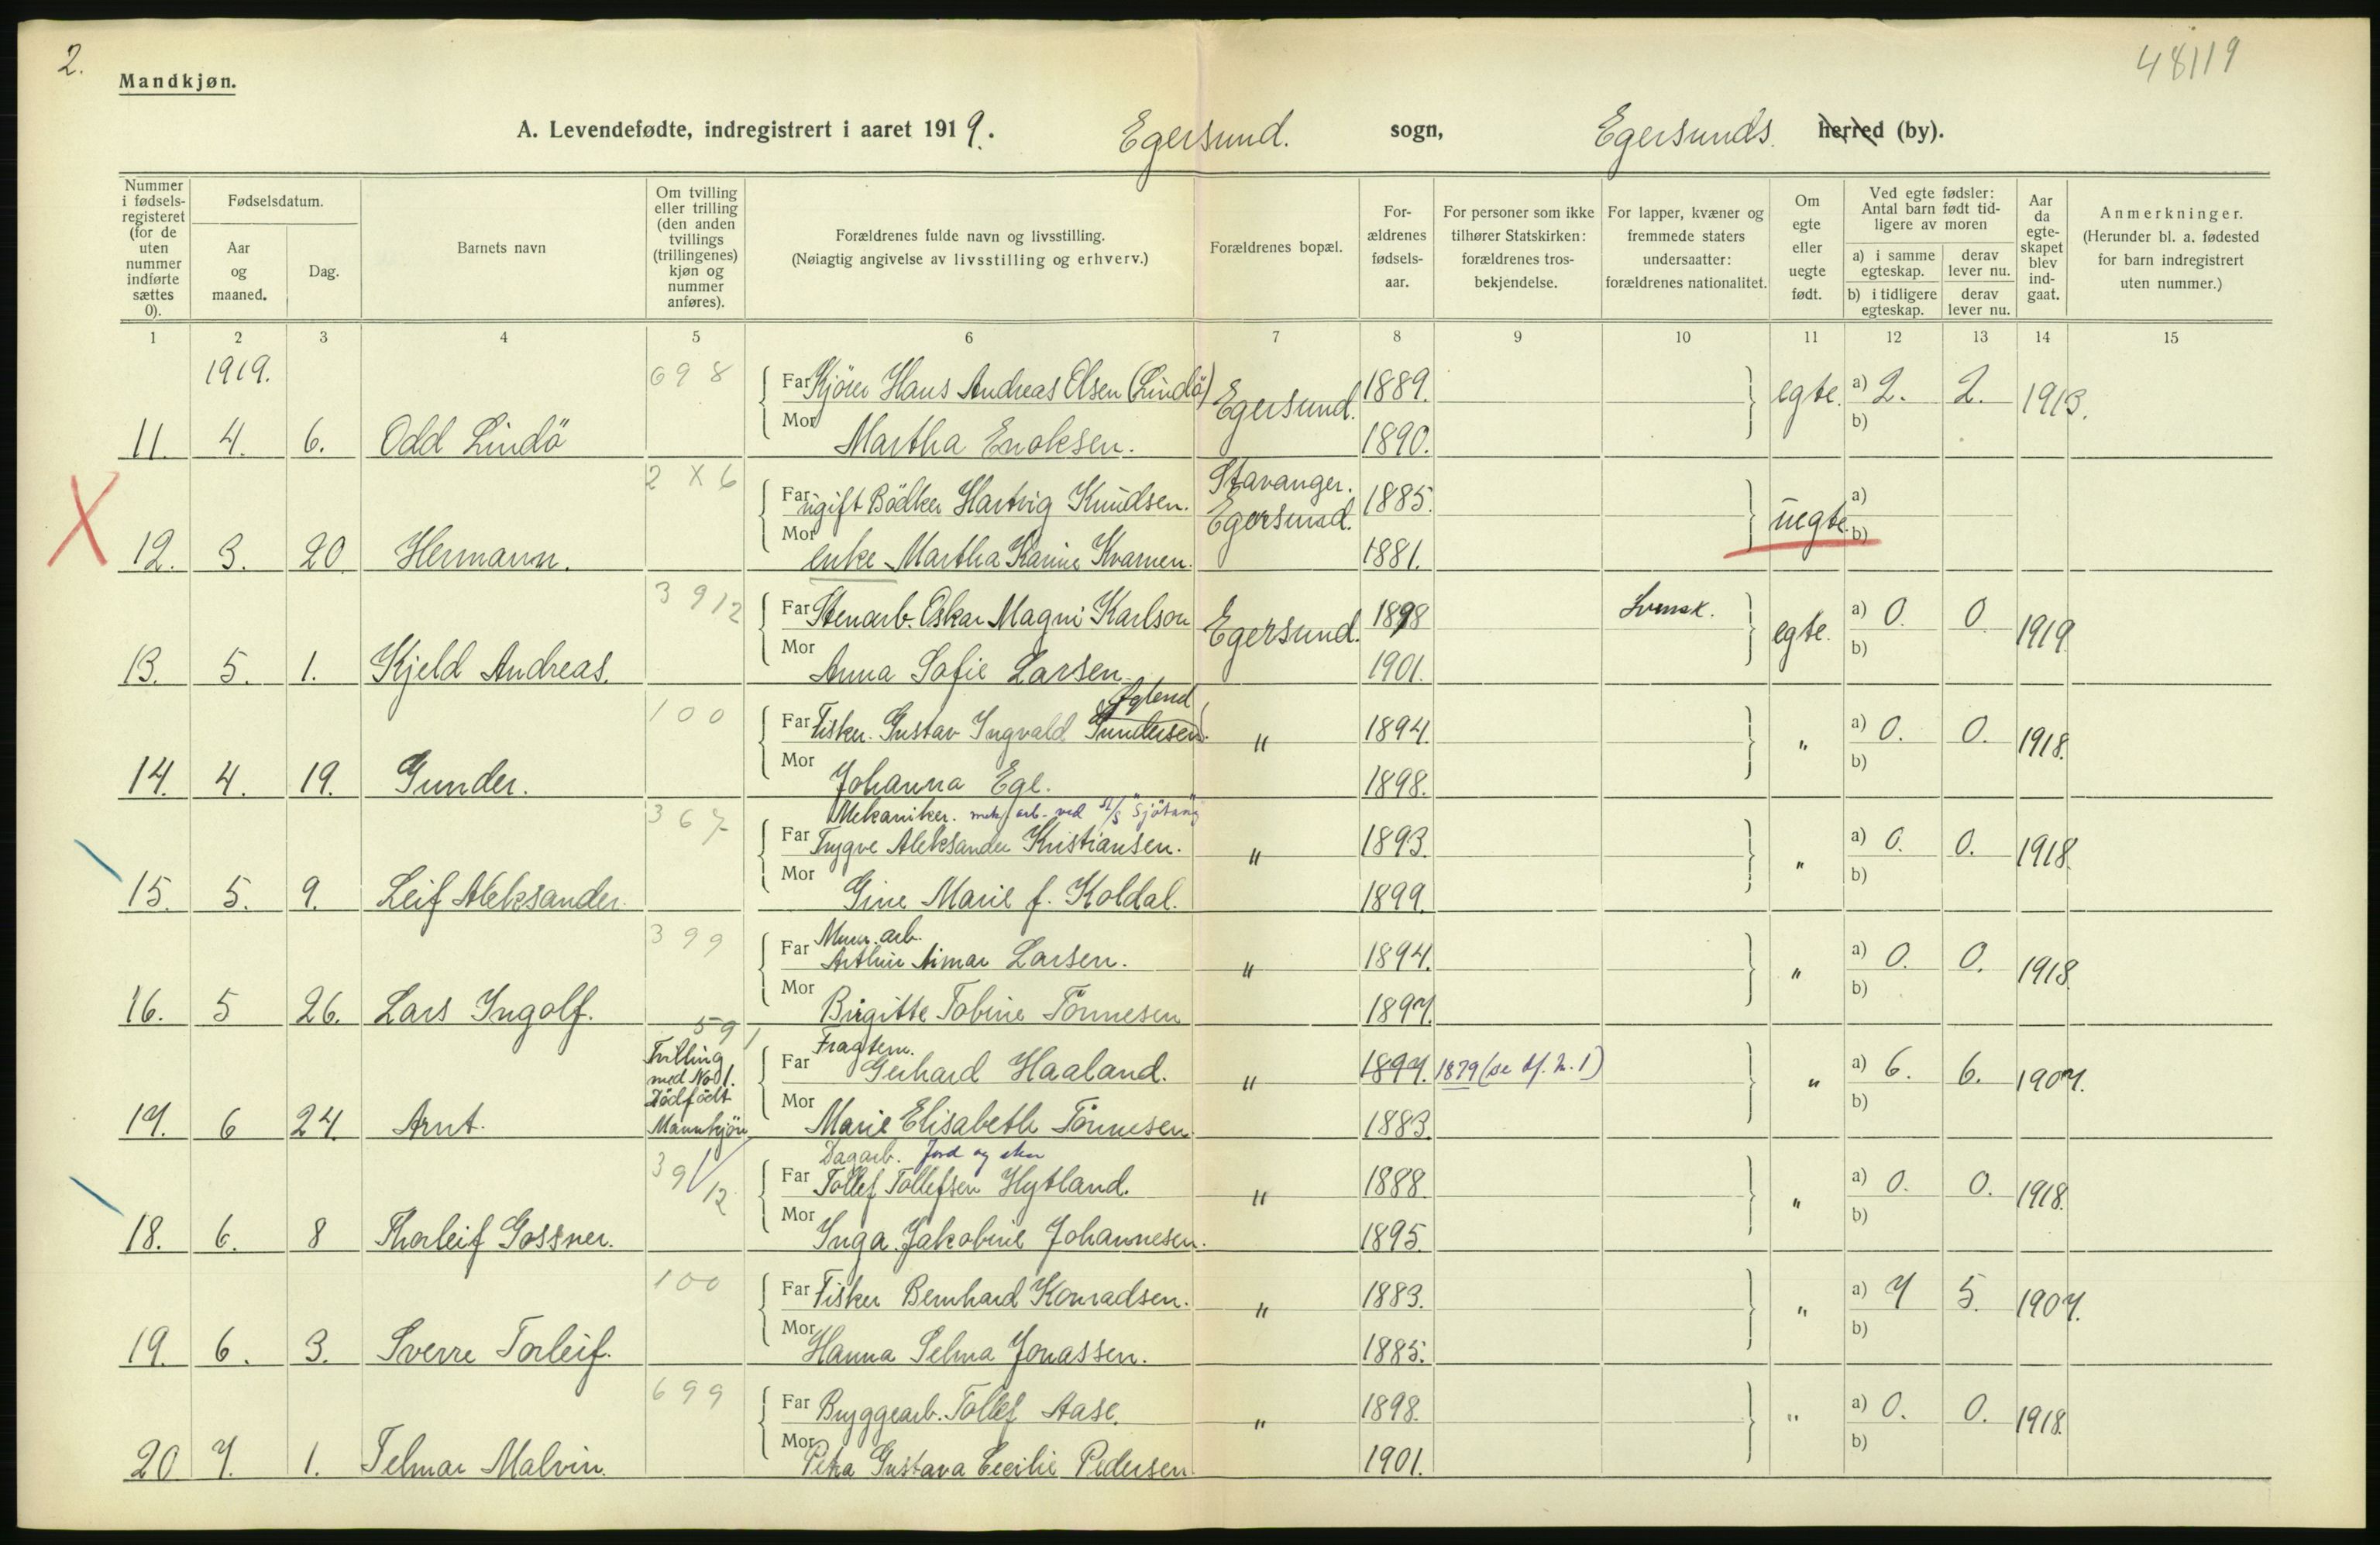 2.
48119
Mandkjøn.
A. Levendefødte, indregistrert i aaret 1919. Egersund. sogn, Egersunds. herred (by).
Nummer i fødselsregisteret (for de uten nummer indførte sættes 0).
Fødselsdatum.
Aar og maaned.
Dag.
Barnets navn
Om tvilling eller trilling (den anden tvillings (trillingenes) kjøn og nummer anføres).
Forældrenes fulde navn og livsstilling.
(Nøiagtig angivelse av livsstilling og erhverv.)
Forældrenes bopæl.
Forældrenes fødselsaar.
For personer som ikke tilhører Statskirken: forældrenes trosbekjendelse.
For lapper, kvæner og fremmede staters undersaatter: forældrenes nationalitet.
Om egte eller uegte født.
Ved egte fødsler: Antal barn født tidligere av moren
a) i samme egteskap.
derav lever nu.
b) i tidligere egteskap.
derav lever nu.
Aar da egteskapet blev indgaat.
Anmerkninger.
(Herunder bl. a. fødested for barn indregistrert uten nummer.)
1 2 3 4 5 6 7 8 9 10 11 12 13 14 15
1919. 698 Far Kjører Hans Andreas Olsen (Lindö) Egersund. 1889. egte. a) 2. 2. 1913.
11. 4. 6. Odd Lindö Mor Martha Enoksen. 1890. b)
X 2 X 6 Far ugift Bödker Hartvig Knudsen. Stavanger. 1885. uegte. a)
12. 3. 20 Hermann. Mor enke Martha Karine Kvamen. Egersund. 1881. b)
3 9 12 Far Stenarb. Oskar Magni Karlson Egersund. 1898 Svensk. egte. a) 0. 0 1919.
13. 5. 1. Kjeld Andreas. Mor Anna Sofie Larsen. 1901. b)
Egland
100 Far Fisker. Gustav Ingvald Gundersen. " 1894. " a) 0. 0. 1918.
14. 4. 19. Gunder. Mor Johanna Ege. 1898. b)
Mekaniker. mek. arb. ved
367 Far Trygve Aleksander Kristiansen. " 1893. " a) 0. 0. 1918.
15. 5. 9. Leif Aleksander. Mor Gine Marie f. Koldal. 1899. b)
Murer. arb.
399 Far Arthur Aimar Larsen. " 1894. " a) 0. 0. 1918
16. 5 26. Lars Ingolf. Mor Birgitte Tobine Tönnesen 1897. b)
591 Fragtem.
Tvilling med No 1. Dödfödt Mannkjön Far Gerhard Haaland. " 1897. 1879 (se df. n. 1) " a) 6. 6. 1907.
17. 6 27. Arnt. Mor Marie Elisabeth Tönnesen. 1883. b)
Dagarb. Jord og
391/12 Far Tollef Tollefsen Hytland. " 1888. " a) 0. 0. 1918.
18. 6. 8 Thorleif Gossner. Mor Inga Jakobine Johannesen. 1895. b)
100 Far Fisker Bernhard Konradsen. " 1883. " a) 7 5. 1907.
19. 6. 3. Sverre Torleif. Mor Hanna Selma Jonassen. 1885. b)
699 Far Bryggearb. Tollef Aase. " 1898. " a) 0. 0. 1918.
20 7. 1. Telmar Malvin. Mor Petra Gustava Cecilie Pedersen. 1901. b)